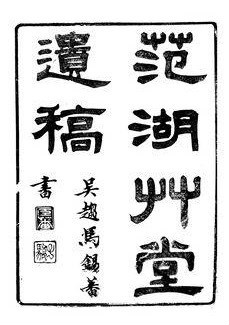 范湖艸堂
遺稿
吳趨馬錫蕃
書